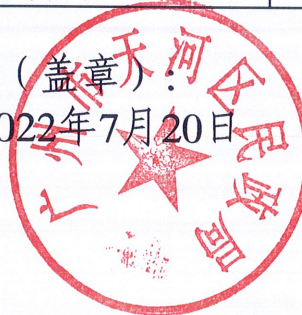 （盖章）：
2022年7月20日
广州市天河区民政局